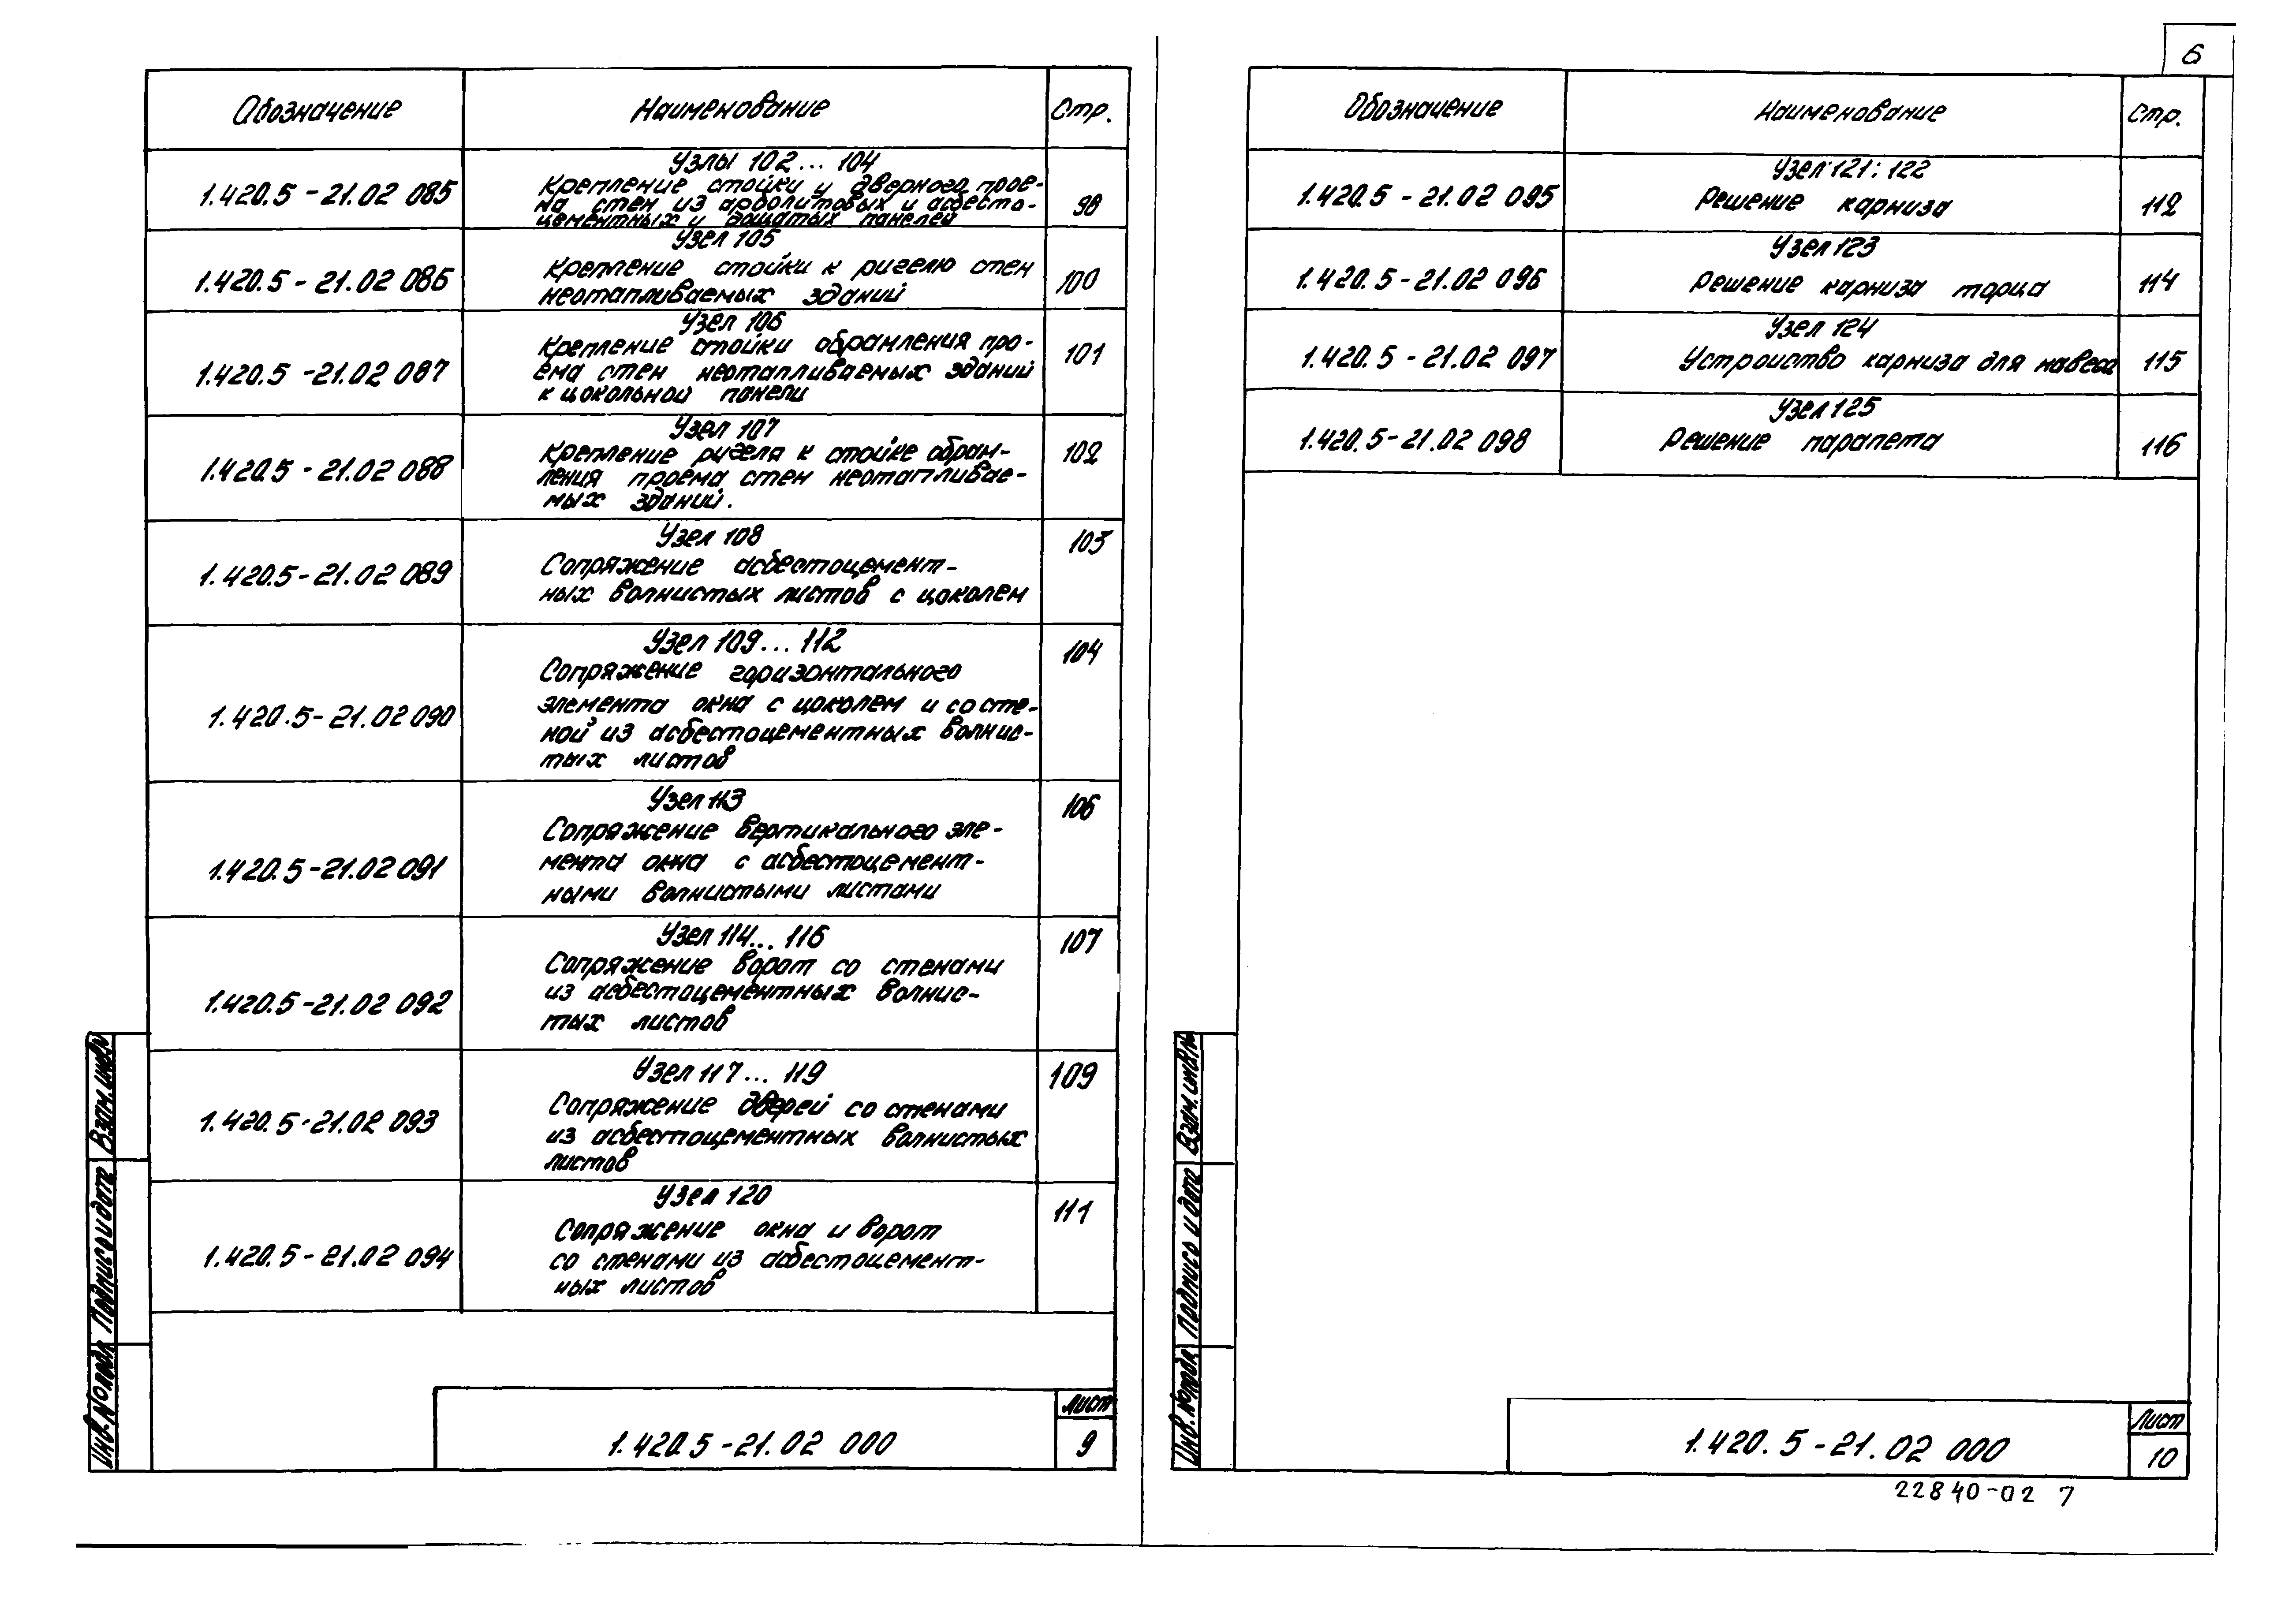 6
Обозначение Наименование Стр.
Узлы 102... 104
1.420.5-21.02 085 Крепление стойки и дверного прое-
ма стен из арболитовых и асбесто-
цементных и дощатых панелей
98
Узел 105
1.420.5-21.02 086 Крепление стойки к ригелю стен 100
неотапливаемых зданий
Узел 106
1.420.5-21.02 087 Крепление стойки обрамления про- 101
ема стен неотапливаемых зданий
к цокольной панели
Узел 107
1.420.5-21.02 088 Крепление ригеля к стойке обрам- 102
ления проема стен неотапливае-
мых зданий.
Узел 108 103
1.420.5-21.02 089 Сопряжение асбестоцемент-
ных волнистых листов с цоколем
Узел 109... 112 104
Сопряжение горизонтального
1.420.5-21.02 090 элемента окна с цоколем и со сте-
ной из асбестоцементных волнис-
тых листов
Узел 113 106
Сопряжение вертикального эле-
1.420.5-21.02 091 мента окна с асбестоцемент-
ными волнистыми листами
Узел 114... 116 107
Сопряжение ворот со стенами
1.420.5-21.02 092 из асбестоцементных волнис-
тых листов
Узел 117... 119 109
1.420.5-21.02 093 Сопряжение дверей со стенами
из асбестоцементных волнистых
листов
Узел 120 111
Сопряжение окна и ворот
1.420.5-21.02 094 со стенами из асбестоцемент-
ных листов
Инв.№подл. Подпись и дата Взам.инв.№
1.420.5-21.02 000
Лист
9
Обозначение Наименование Стр.
Узел 121; 122
1.420.5-21.02 095 Решение карниза 112
Узел 123
1.420.5-21.02 096 Решение карниза торца 114
Узел 124
1.420.5-21.02 097 Устройство карниза для навеса 115
Узел 125
1.420.5-21.02 098 Решение парапета 116
Инв.№подл. Подпись и дата Взам.инв.№
1.420.5-21.02 000
Лист
10
22840-02 7